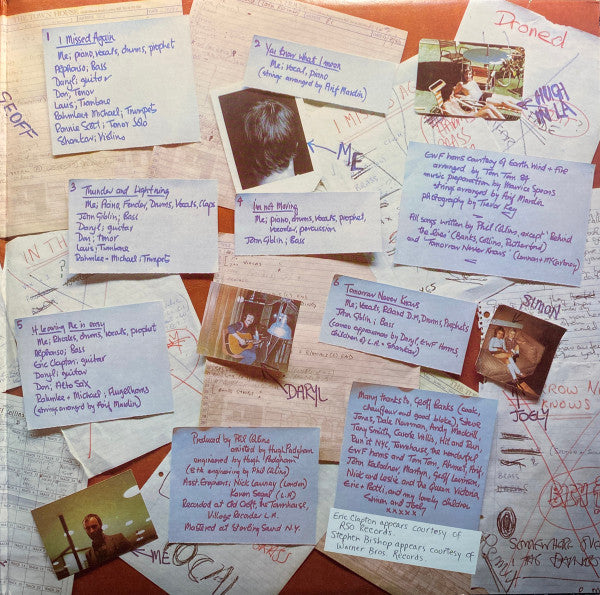 THE TOWN HOUSE
Droned
1 I Missed Again
Me; piano, vocals, drums, prophet
Alphonso; Bass
Daryl; guitar
Don; Tenor
Louis; Trombone
Rahmlee + Michael; Trumpets
Ronnie Scott; Tenor Solo
Shankar; Violins
2 You know what I mean
Me; vocal, piano
(strings arranged by Arif Mardin)
HUGH
IN LA
GEOFF
ME
EWF horns courtesy of Earth Wind + Fire
arranged by Tom Tom 84
music preparation by Maurice Spears
strings arranged by Arif Mardin
photography by Trevor Key
All songs written by Phil Collins, except 'Behind
the lines' (Banks, Collins, Rutherford)
and 'Tomorrow Never Knows' (Lennon + McCartney)
3 Thunder and Lightning
Me; Piano, Fender, Drums, Vocals, Claps
John Giblin; Bass
Daryl; guitar
Don; Tenor
Louis; Trombone
Rahmlee + Michael; Trumpets
4 I'm not Moving
Me; piano, drums, vocals, prophet,
vocoder, percussion
John Giblin; Bass
IN TH
5 If leaving me is easy
Me; Rhodes, drums, vocals, prophet
Alphonso; Bass
Eric Clapton; guitar
Daryl; guitar
Don; Alto Sax
Rahmlee + Michael; Flugelhorns
(strings arranged by Arif Mardin)
6 Tomorrow Never Knows
Me; Vocals, Roland D.M., Drums, Prophets
John Giblin; Bass
(cameo appearances by Daryl, EWF Horns,
children of L.A. + Shankar)
SIMON
JOELY
DARYL
KNOWS
Produced by Phil Collins
assisted by Hugh Padgham
engineered by Hugh Padgham
(8 tk engineering by Phil Collins)
Asst Engineers; Nick Launay (London)
Karen Siegel (L.A)
Recorded at Old Croft, the Townhouse,
Village Recorder L.A.
Mastered at Sterling Sound N.Y.
Many thanks to, Geoff Banks (cook,
chauffeur and good bloke), Steve
Jones, Dale Newman, Andy Mackrill,
Tony Smith, Carole Willis, Hit and Run,
Pun at NYC, Townhouse, the wonderful
EWF horns and Tom Tom, Ahmet, Arif,
John Kalodner, Martyn, Geoff Levinson,
Nick and Leslie and the Queen Victoria
Eric + Patti, and my lovely children
Simon and Joely
xxxxx
Eric Clapton appears courtesy of
RSO Records.
Stephen Bishop appears courtesy of
Warner Bros. Records.
ME